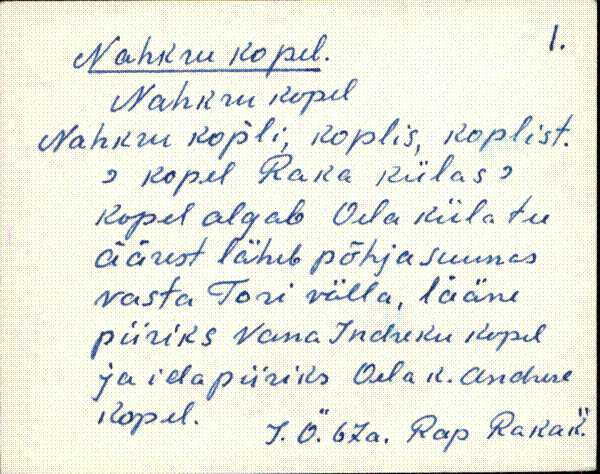 1.
Nahkru kopel.
Nahkru kopel
Nahkru kopli, koplis, koplist.
, kopel Raka külas,
kopel algab Oela küla tee
äärest läheb põhja suunas
vasta Tori välla, lääne
piiriks Vana Indreku kopel
ja idapiiriks Oela k. Andrese
kopel.
J. Ö. 67a. Rap Raka k.